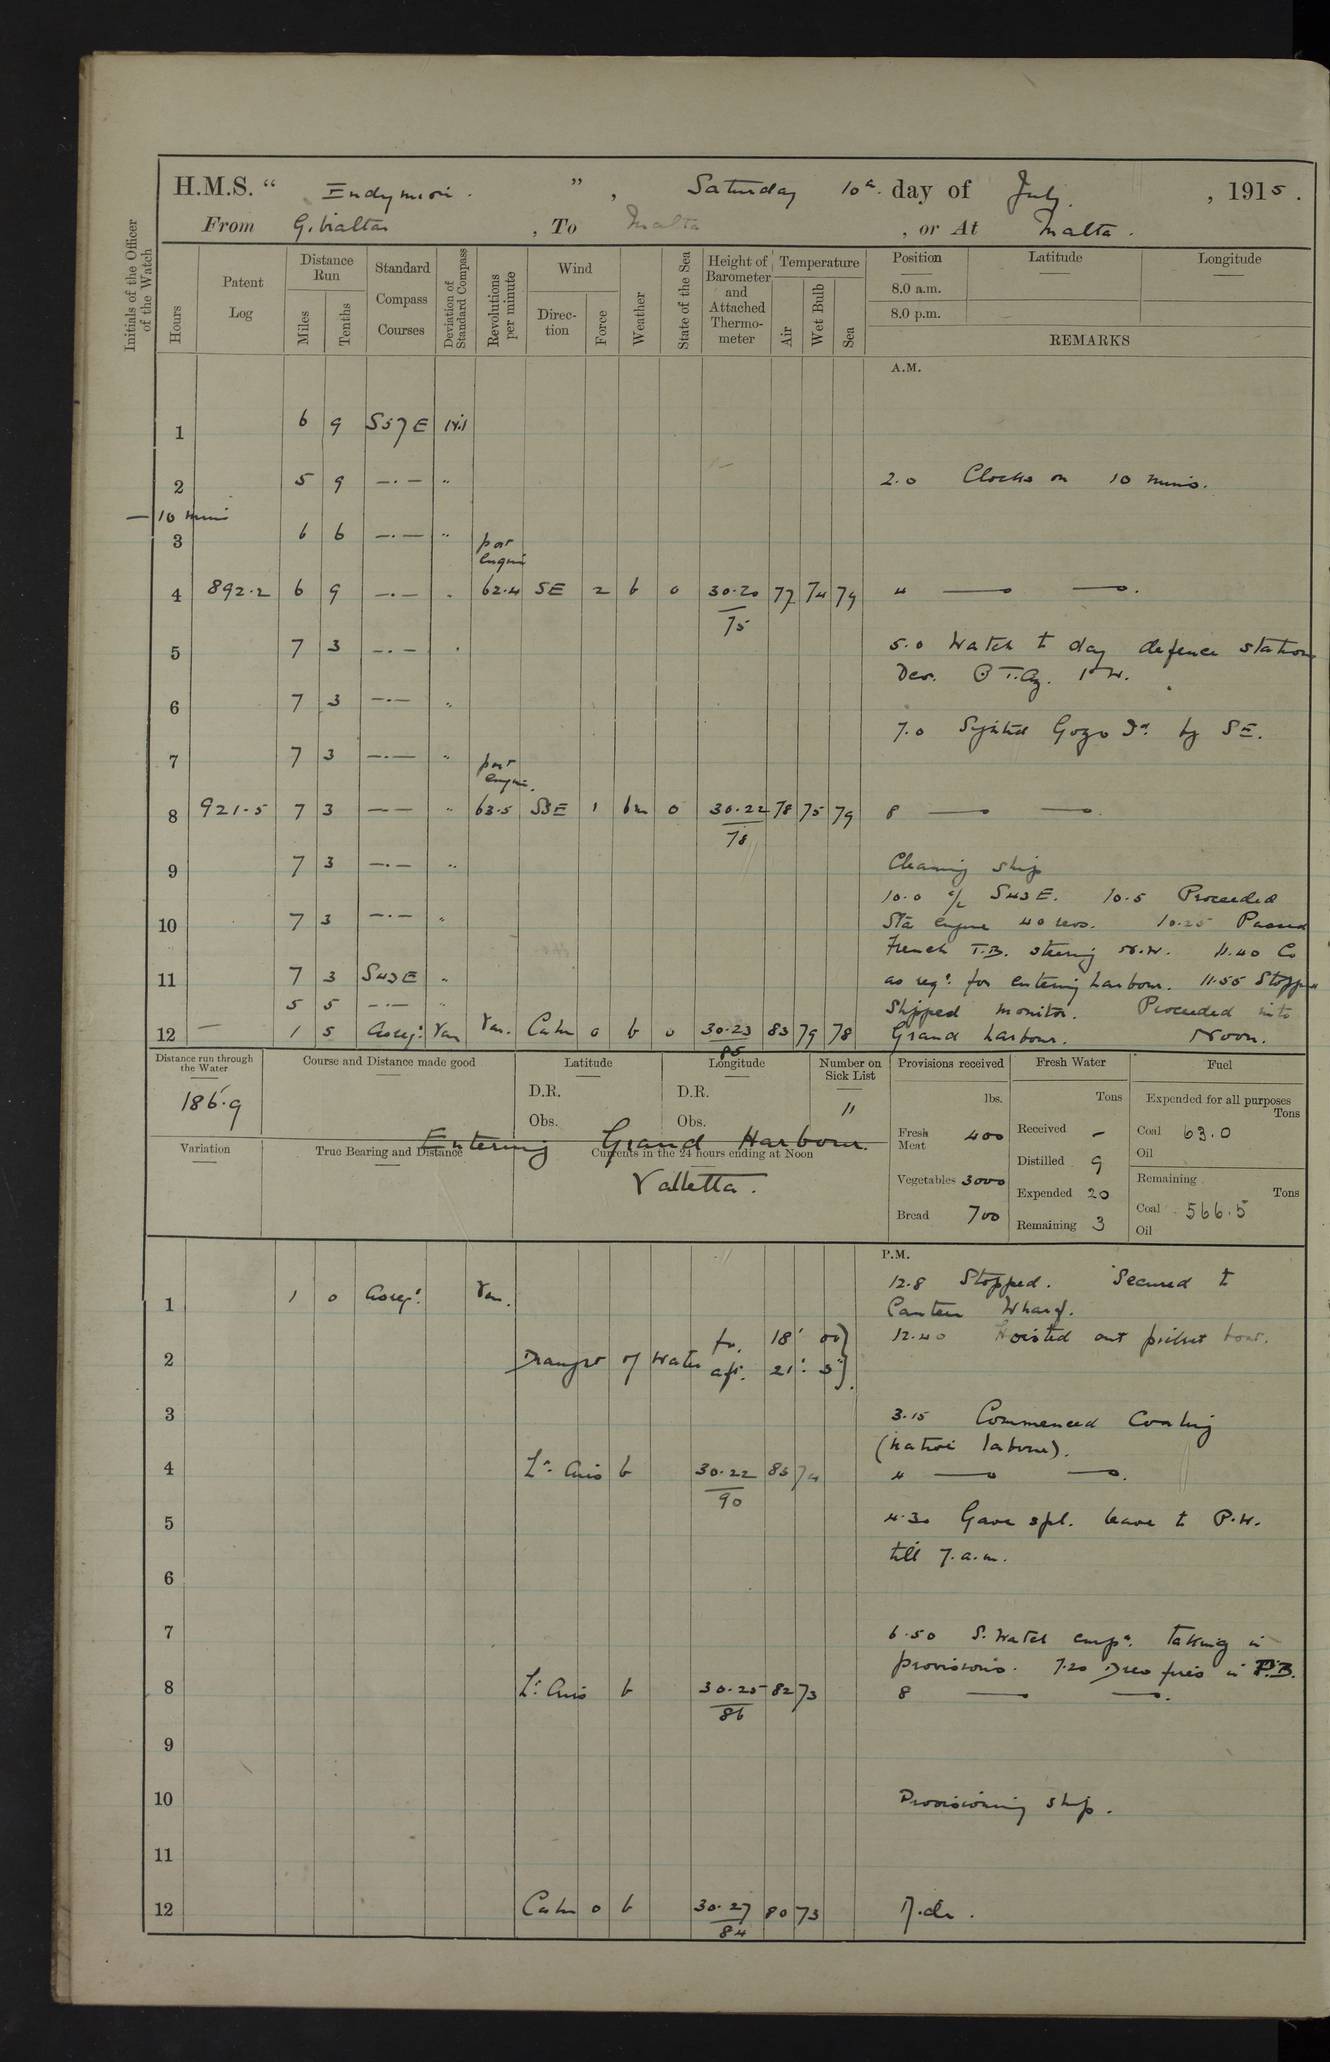 H.M.S. “ Endymion. ” , Saturday 10th. day of July. , 1915 .
From Gibraltar , To Malta , or At Malta .
Initials of the Officer of the Watch
Hours
Patent Log
Distance Run
Miles
Tenths
Standard Compass Courses
Deviation of Standard Compass
Revolutions per minute
Wind
Direction
Force
Weather
State of the Sea
Height of Barometer and Attached Thermometer
Temperature
Air
Wet Bulb
Sea
Position Latitude Longitude
8.0 a.m.
8.0 p.m.
REMARKS
A.M.
1 6 9 S57E
2 5 9 —.— " 2.0 Clocks on 10 mins.
— 10 mins
3 6 6 —.— " port engine
4 892.2 6 9 —.— " 62.4 SE 2 b 0 30.20 77 74 79 4 — —.
75
5 7 3 —.— " 5.0 Watch to day defence stations
6 7 3 —.— "
7.0 Sighted Gozo Id. by SE.
7 7 3 —.— " port engine.
8 921.5 7 3 —— " 63.5 SBE 1 bm 0 30.22 78 75 79 8 — —.
78
9 7 3 —.— " Cleaning ship
10.0 a/c S43E. 10.5 Proceeded
10 7 3 —.— " Sta engine 40 revs. 10.25 Passed
French T.B. steering N.W. 11.40 Co
11 7 3 S43E " as reqd. for entering harbour. 11.55 Stopped
5 5 —.— " Shipped monitor. Proceeded into
12 — 1 5 As req. Var Var. Calm 0 b 0 30.23 83 79 78 Grand harbour. Noon.
85
Distance run through the Water
186.9
Course and Distance made good
Latitude
D.R.
Obs.
Longitude
D.R.
Obs.
Number on Sick List
11
Entering Grand Harbour.
Valletta.
Variation
True Bearing and Distance
Currents in the 24 hours ending at Noon
Provisions received
lbs.
Fresh Meat 400
Vegetables 3000
Bread 700
Fresh Water
Tons
Received –
Distilled 9
Expended 20
Remaining 3
Fuel
Expended for all purposes
Tons
Coal 63.0
Oil
Remaining
Tons
Coal 566.5
Oil
P.M.
12.8 Stopped. Secured to
1 1 0 As reqd. Var. Canteen Wharf.
12.40 Hoisted out picket boat.
2 Draught of Water for. 18' 00"
aft. 21' 3"
3 3.15 Commenced Coaling
(native labour).
4 Lt. Airs b 30.22 83 74 4 — —.
90
5 4.30 Gave spl. leave to P.W.
till 7.a.m.
6
7 6.50 S. Watch empd. taking in
provisions. 7.20 Drew fires in P.B.
8 Lt. Airs b 30.25 82 73 8 — —.
86
9
10 Provisioning ship.
11
12 Calm 0 b 30.27 80 73
84